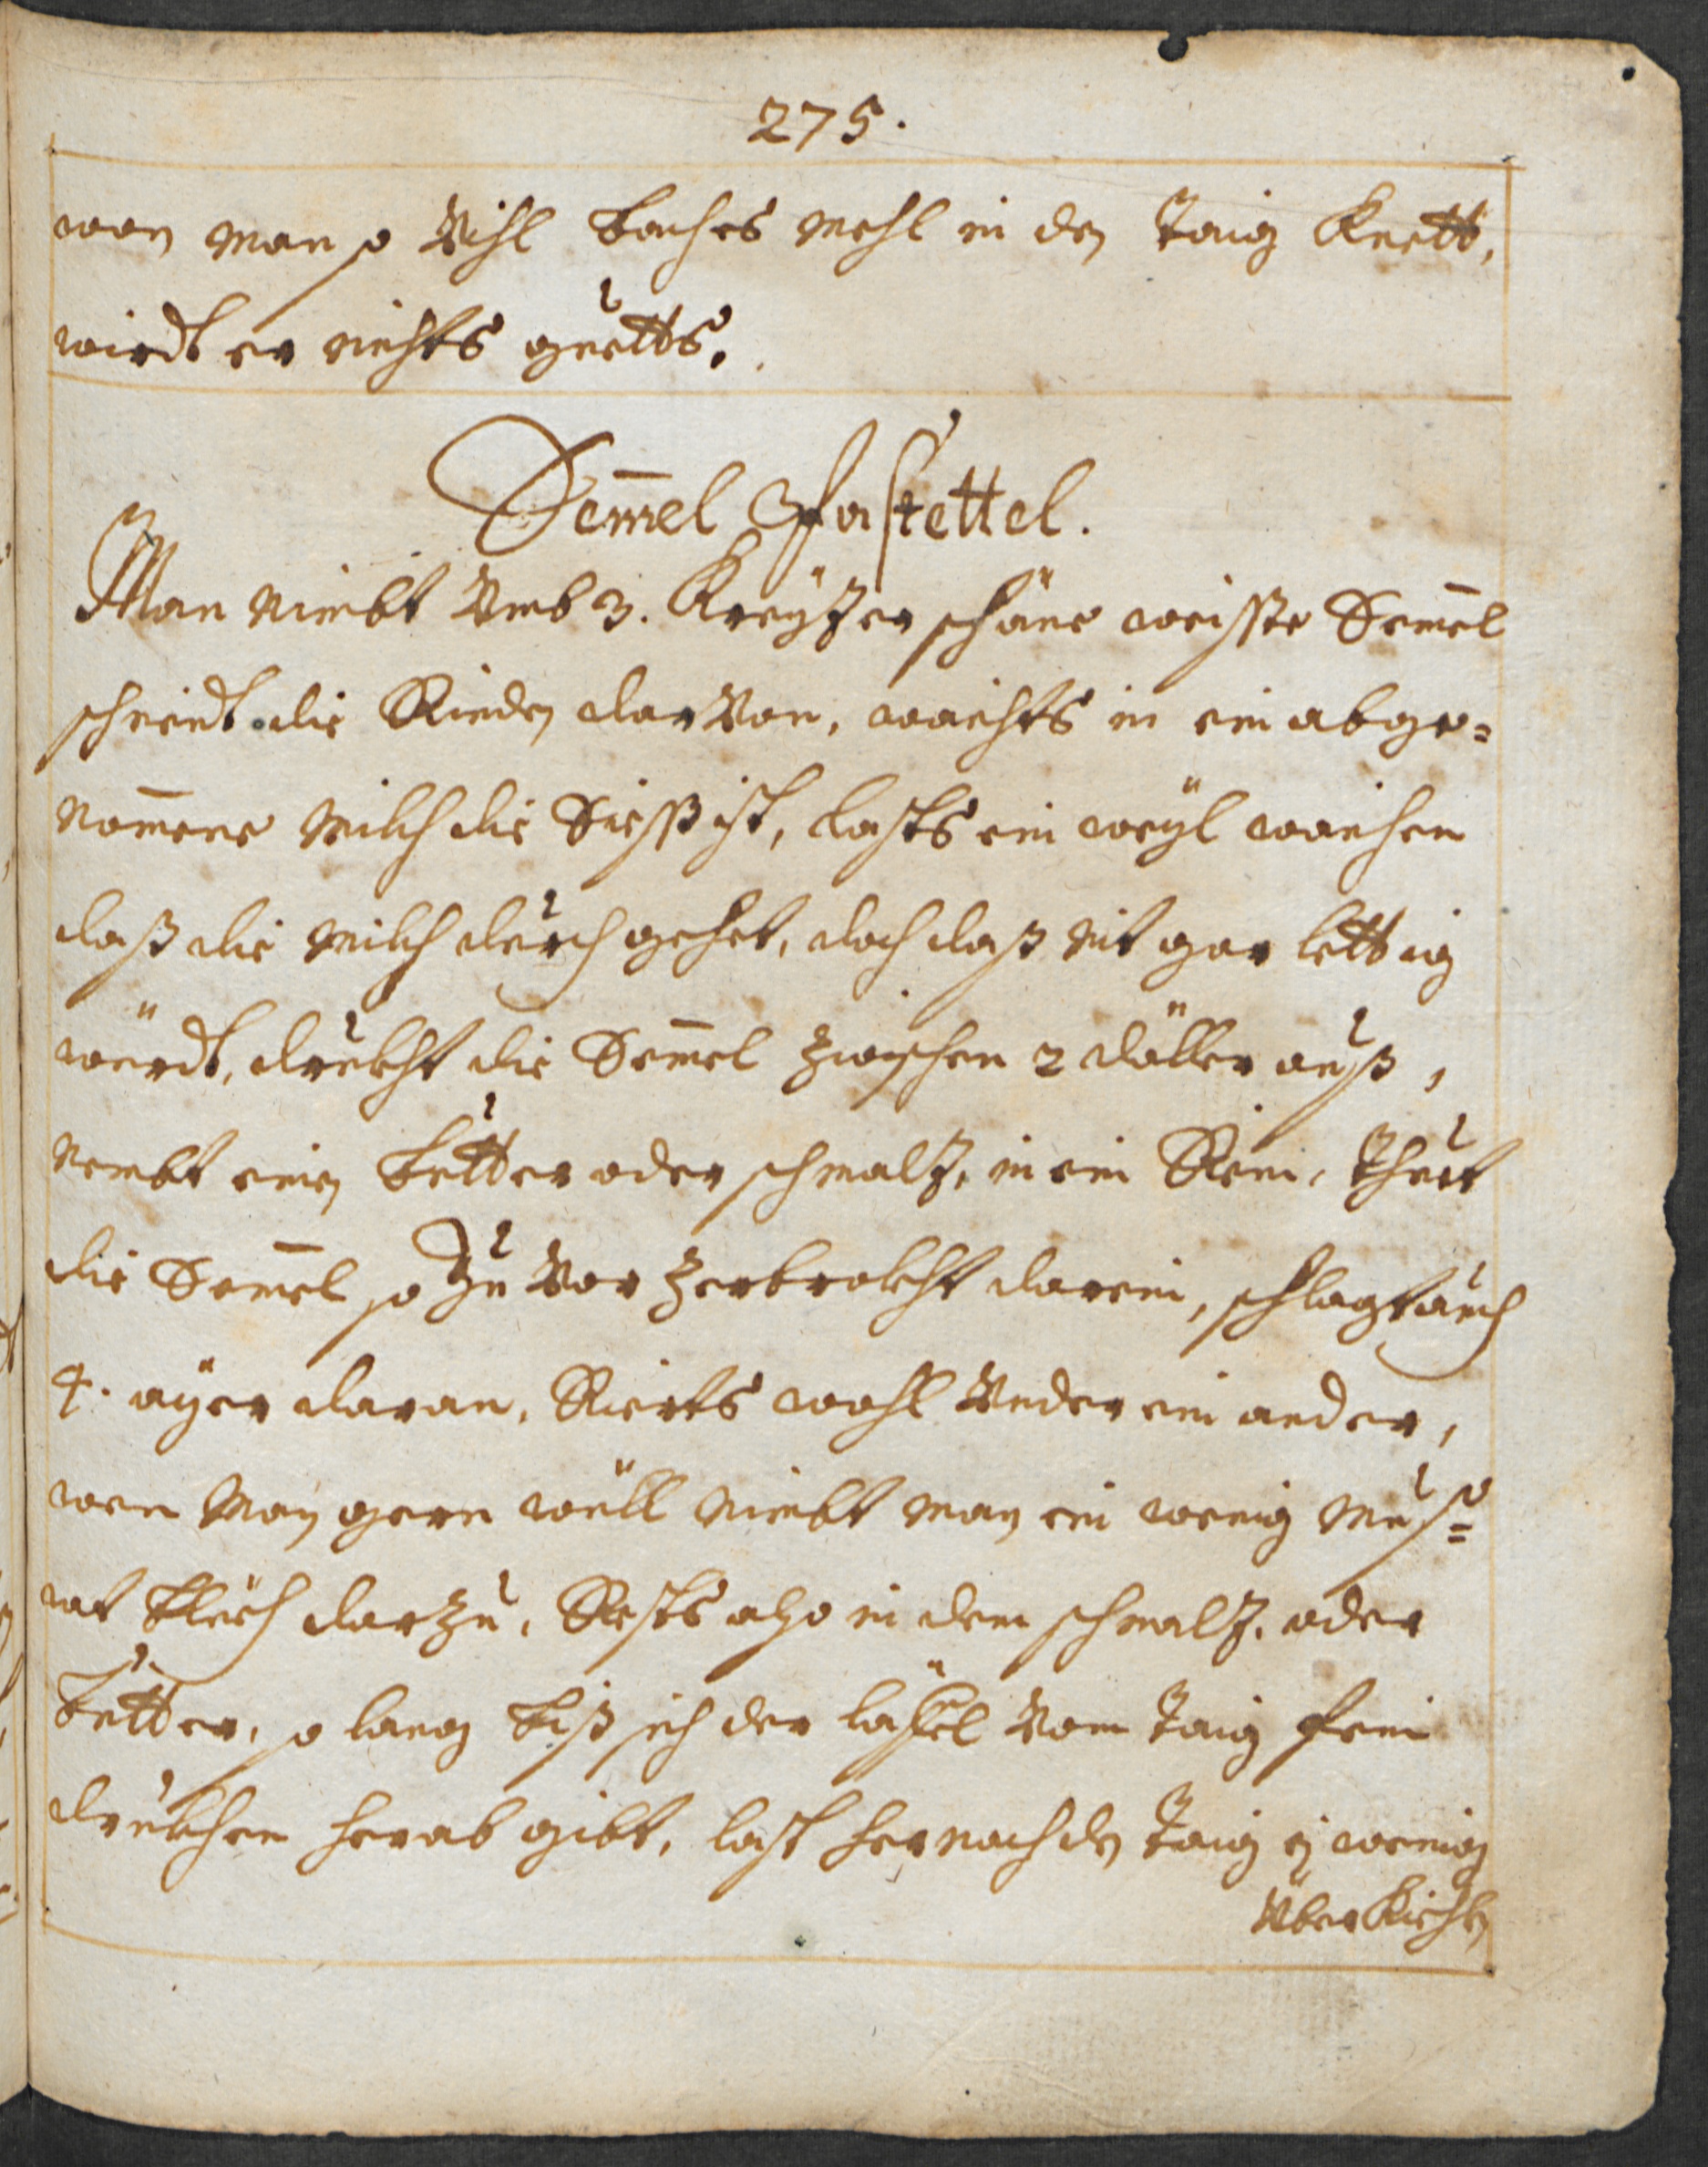 275.
wan man so Vihl baches mehl in den Taig Knett,
wirdt er nichts guetts.
Sem̄el Pastettel.
Man nimbt Vmb 3. Kreÿzer schöne weisse Sem̄el
schneidt die Rinden darVon, waichts in ein abge=
nom̄ene Milch die Siess ist, lasts ein weÿl waichen
dass die Milch durch gehet, doch dass nit gar lettig
würdt, drukht die Sem̄el zwischen 2 däller auss,
nembt einen butter oder schmalz, in ein Rein, thuet
die Sem̄el so zu Vor zerbrokht darein, schlagt auch
4. aÿer daran, Rierts wohl Vnder ein ander,
wen Man gern wüll nimbt man ein wenig Mus=
cat blüch darzu, Rests also in dem schmalz, oder
butter, so lang biss sich der läffel Vom Taig fein
drukhen herab gibt, last hernach den Taig ein wenig
Vber Kiehlen